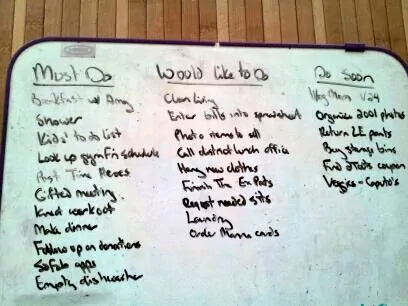 Must Do
Breakfast w/ Amy
Shower
Kids' to do list
Look up gym Fri schedule
Post Time
Gifted meeting
Kned workout
Make dinner
Follow up on donations
SoFab apps
Empty dishwasher
Would like to Do
Clean Living
Enter bills into spreadsheet
Photo items to sell
Call district lunch office
Hang new clothes
Finish The Ex Pats
Request needed
Laundry
Order Mama cards
Do Soon
V24
Organize 2001 photos
Return LE pants
Buy storage bins
Find coupon
Veggies - Caputo's